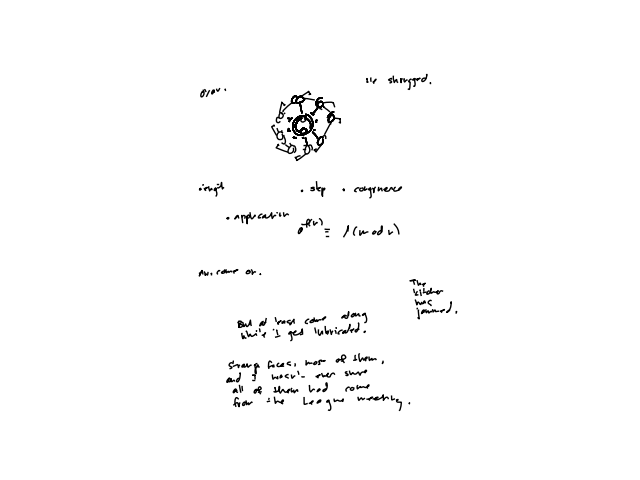 He shrugged.
• step • congruence
• application
≡ 1 (mod n)
Aw, come on.
The
kitchen
was
jammed.
But at least come along
while I get lubricated.
Strange faces, most of them,
and I wasn't even sure
all of them had come
from the League meeting.